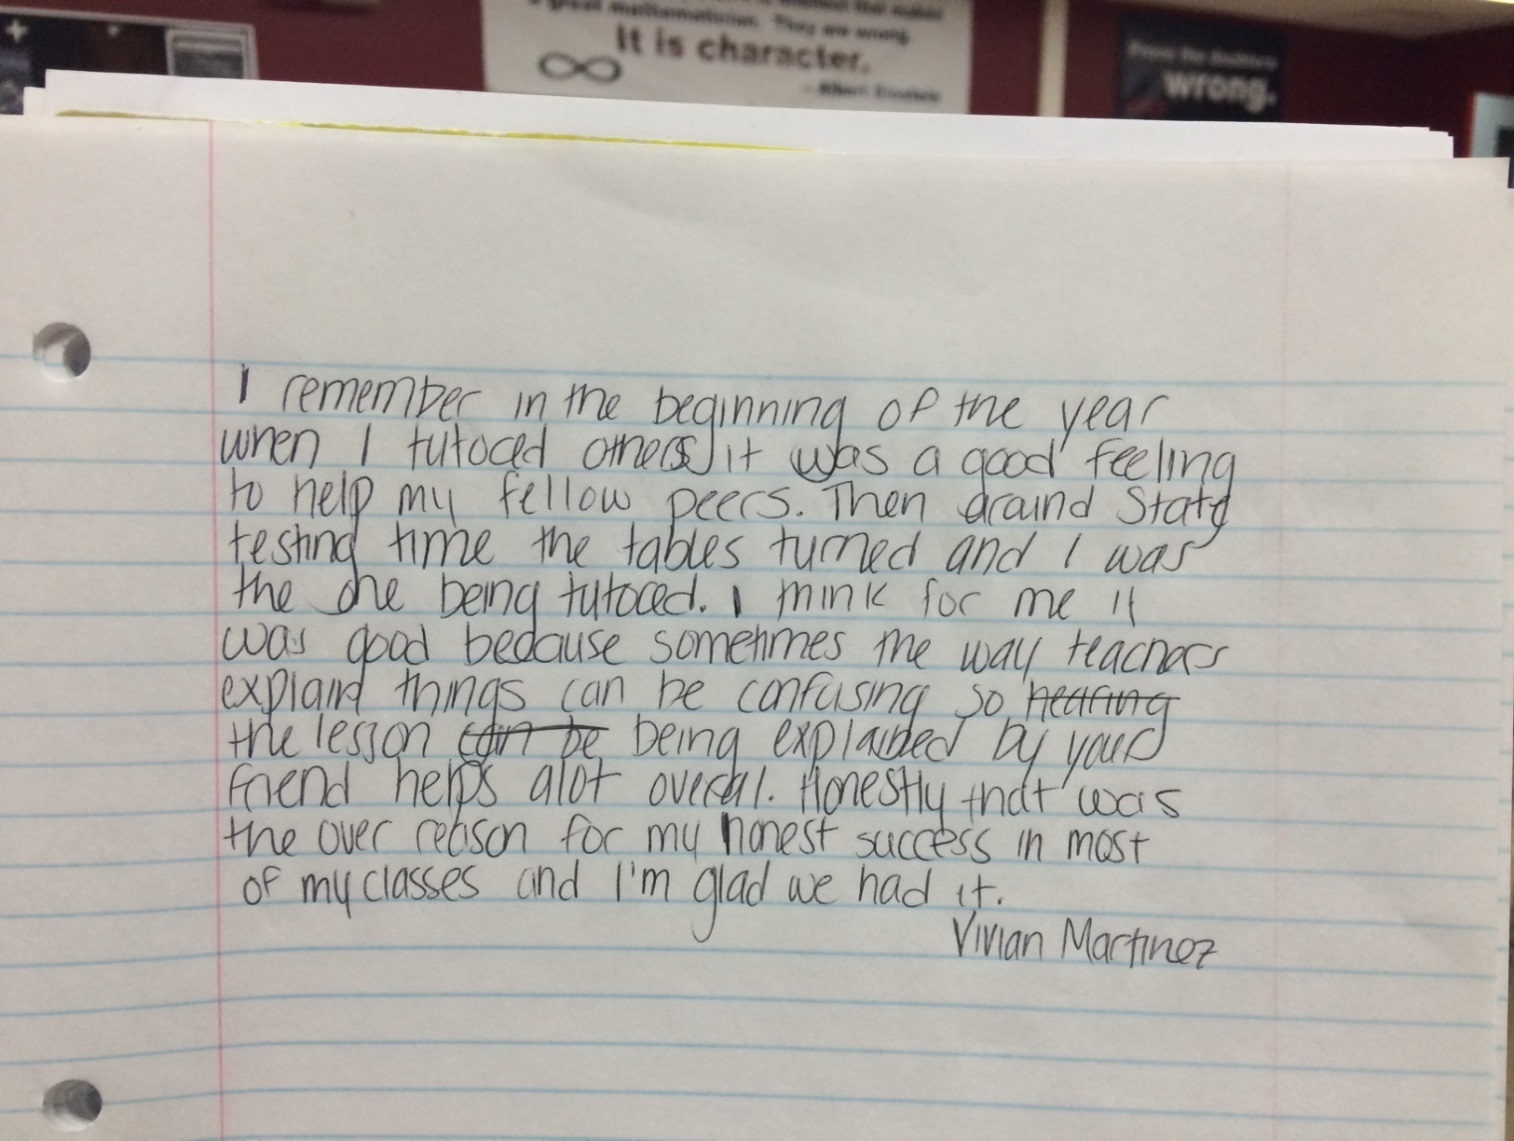 a great mathematician. They are wrong.
It is character.
- Albert Einstein
Prove the doubters
wrong.
I remember in the beginning of the year
when I tutored others, it was a good feeling
to help my fellow peers. Then around State
testing time the tables turned and I was
the one being tutored. I think for me it
was good because sometimes the way teachers
explaind things can be confusing so hearing
the lesson can be being explained by your
friend helps alot overal. Honestly that was
the over reason for my honest success in most
of my classes and I'm glad we had it.
Vivian Martinez